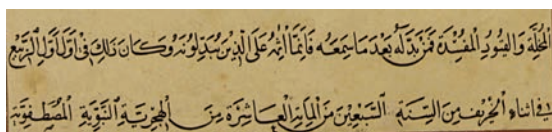 المخلة والقيود المفسدة فمن بدله بعد ما سمعه فانما اثمه على الذين يبدلونه وكان ذلك في اول اول الربيع
في اثناء الخريف من السنة التسعين من الماية العاشرة من الهجرية النبوية المصطفوية